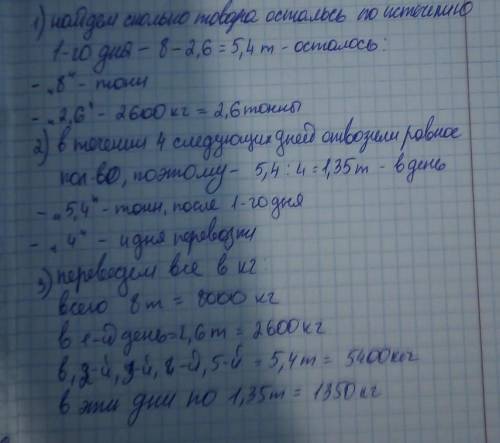 1) найдем сколько товара осталось по истечению
1-го дня - 8-2,6 = 5,4 т - осталось:
- „8“ - тонн
- „2,6“ - 2600 кг = 2,6 тонны
2) в течении 4 следующих дней отвозили равное
кол-во, поэтому - 5,4 : 4 = 1,35 т - в день
- „5,4“ - тонн, после 1-го дня
- „4“ - 4 дня перевозки
3) переведем все в кг:
всего 8 т = 8000 кг
в 1-й день = 2,6 т = 2600 кг
в, 2-й, 3-й, 4-й, 5-й - 5,4 т = 5400 кг
в эти дни по 1,35 т = 1350 кг